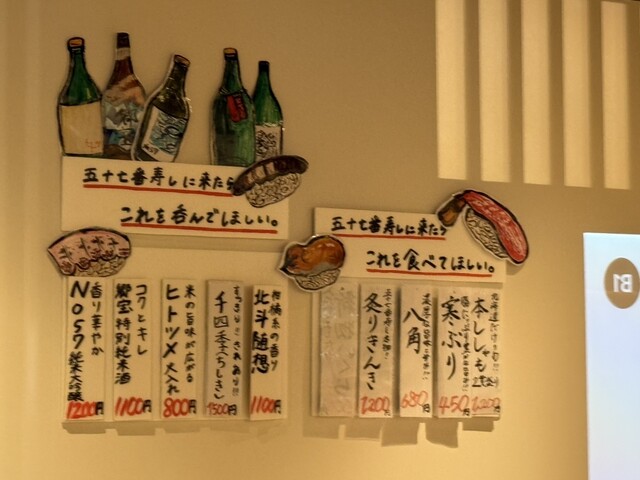 五十七番寿しに来たら
これを呑んでほしい。
柑橘系の香り
北斗随想
1100円
千四季ちしき
1500円
米の旨味が広がる
ヒトツメ 大入れ
800円
コクとキレ
特別純米酒
1100円
香り華やか
No57 純米大吟醸
1200円
五十七番寿しに来たら
これを食べてほしい。
本ししゃも
1,200円
寒ぶり
450円
八角
680円
炙りきんき
1,200円
B1